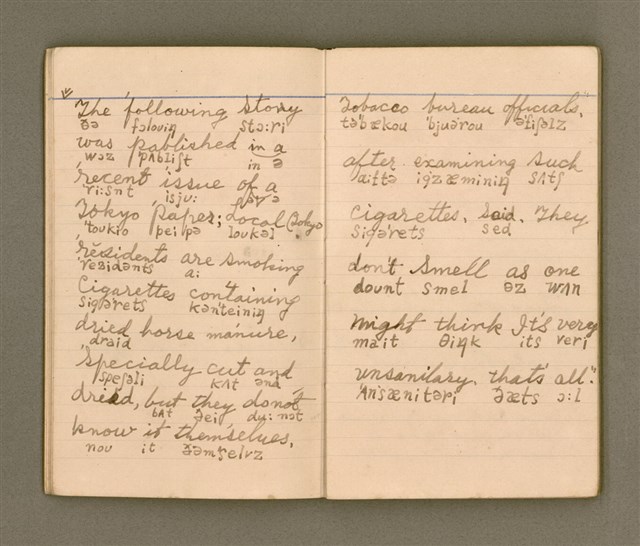 The following story
ðə fɔlouiŋ stɔ:ri
was pablished in a
wəz pʌbliʃt in ə
recent issue of a
ri:snt isju: əv ə
Tokyo paper; Local (Tokyo
toukio peipə loukəl
residents are smoking
rezidənts a:
Cigarettes containing
sigərets kənteiniŋ
dried horse manure,
draid
specially cut and
speʃəli kʌt ənd
dried, but they donot
bʌt ðei du: nət
know it themselves,
nou it ðəmselvz
Tobacco bureau officials,
tə'bækou 'bjuərou ə'fiʃəlz
after examining such
a:ftə ig'zæminiŋ sʌtʃ
Cigarettes, Said, They
sigə'rets sed
don't smell as one
dount smel əz wʌn
might think It's very
mait θiŋk its veri
unsanilary, that's all."
'ʌn'sænitəri ðæts ɔ:l